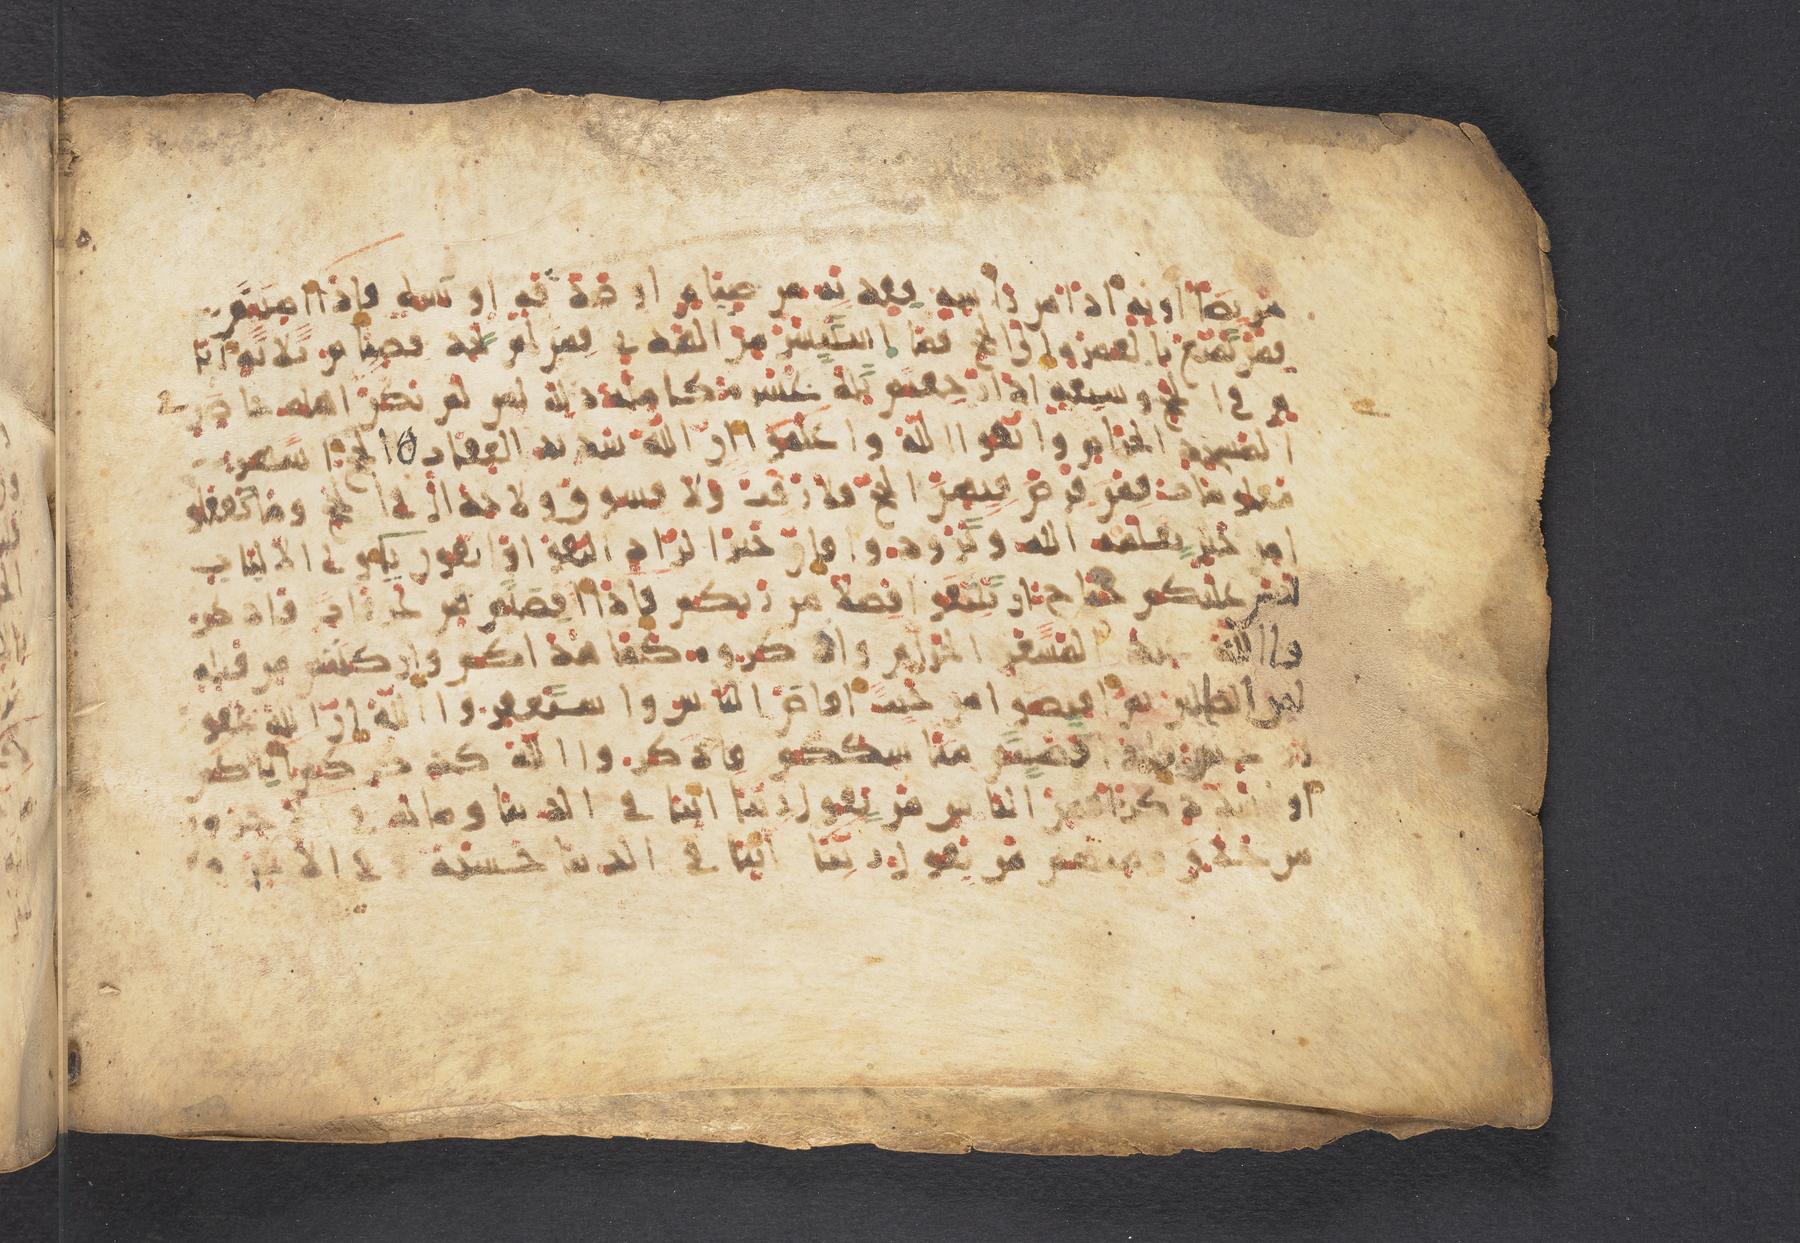 مريضا او به اذا من راسه ففديه من صيام او صدقه او نسك فاذا امنتم
فمن تمتع بالعمره الى الحج فما استيسر من الهدى فمن لم يجد فصيام ثلثه ايا
م فى الحج وسبعه اذا رجعتم تلك عشره كامله ذلك لمن لم يكن اهله حاضرى
المسجد الحرام واتقوا الله واعلموا ان الله شديد العقاب الحج اشهر
معلومات فمن فرض فيهن الحج فلا رفث ولا فسوق ولا جدال فى الحج وما تفعلو
ا من خير يعلمه الله وتزودوا فان خير الزاد التقوى واتقون ياولى الالباب
ليس عليكم جناح ان تبتغوا فضلا من ربكم فاذا افضتم من عرفات فاذكر
وا الله عند المشعر الحرام واذكروه كما هداكم وان كنتم من قبله
لمن الضالين ثم افيضوا من حيث افاض الناس واستغفروا الله ان الله غفو
ر رحيم فاذا قضيتم مناسككم فاذكروا الله كذكركم اباكم
او اشد ذكرا فمن الناس من يقول ربنا اتنا فى الدنيا وماله فى الاخره
من خلاق ومنهم من يقول ربنا اتنا فى الدنيا حسنه وفى الاخره